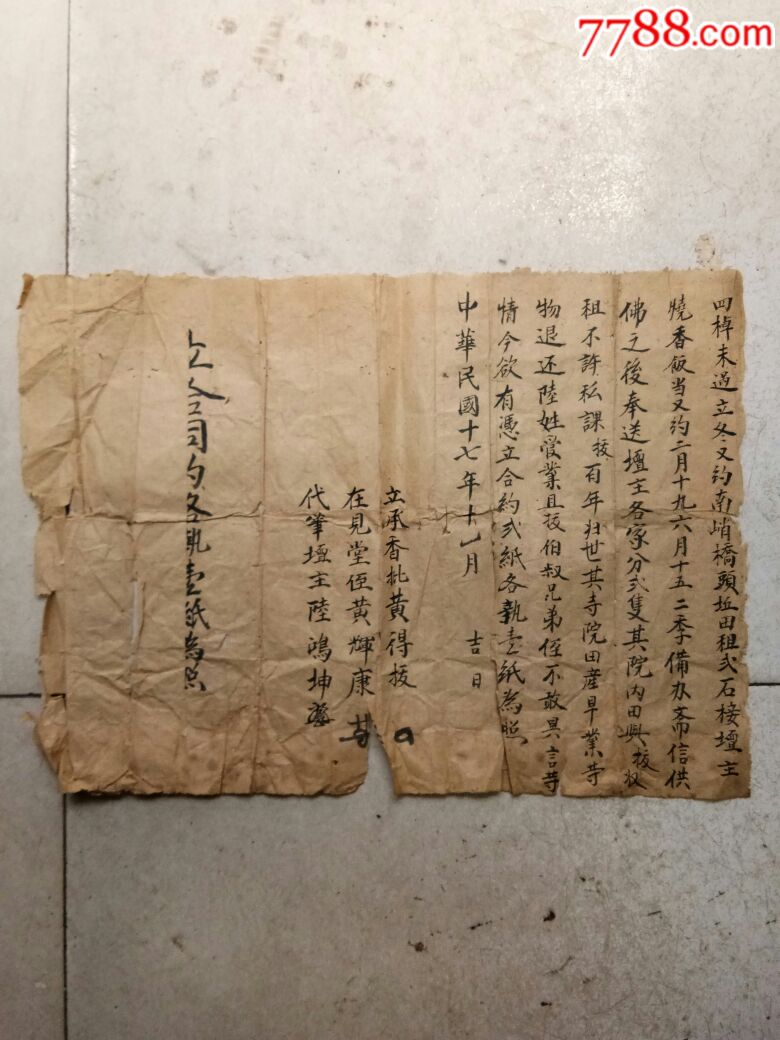 7788.com
四棹未過立冬又約南峭橋頭坵田租弍石接壇主
燒香飯当又約二月十九六月十五二季備办斋信供
佛之後奉送壇主各家分弍隻其院内田與拔収
租不許私課拔百年归世其寺院田産早業等
物退还陸姓管業且拔伯叔兄弟侄不敢異言等
情今欲有憑立合約弍紙各執壹紙為照
中華民國十七年十一月 吉日
立承香批黄得拔
在見堂侄黄輝康
代筆壇主陸鴻坤
立合同約各執壹紙為照